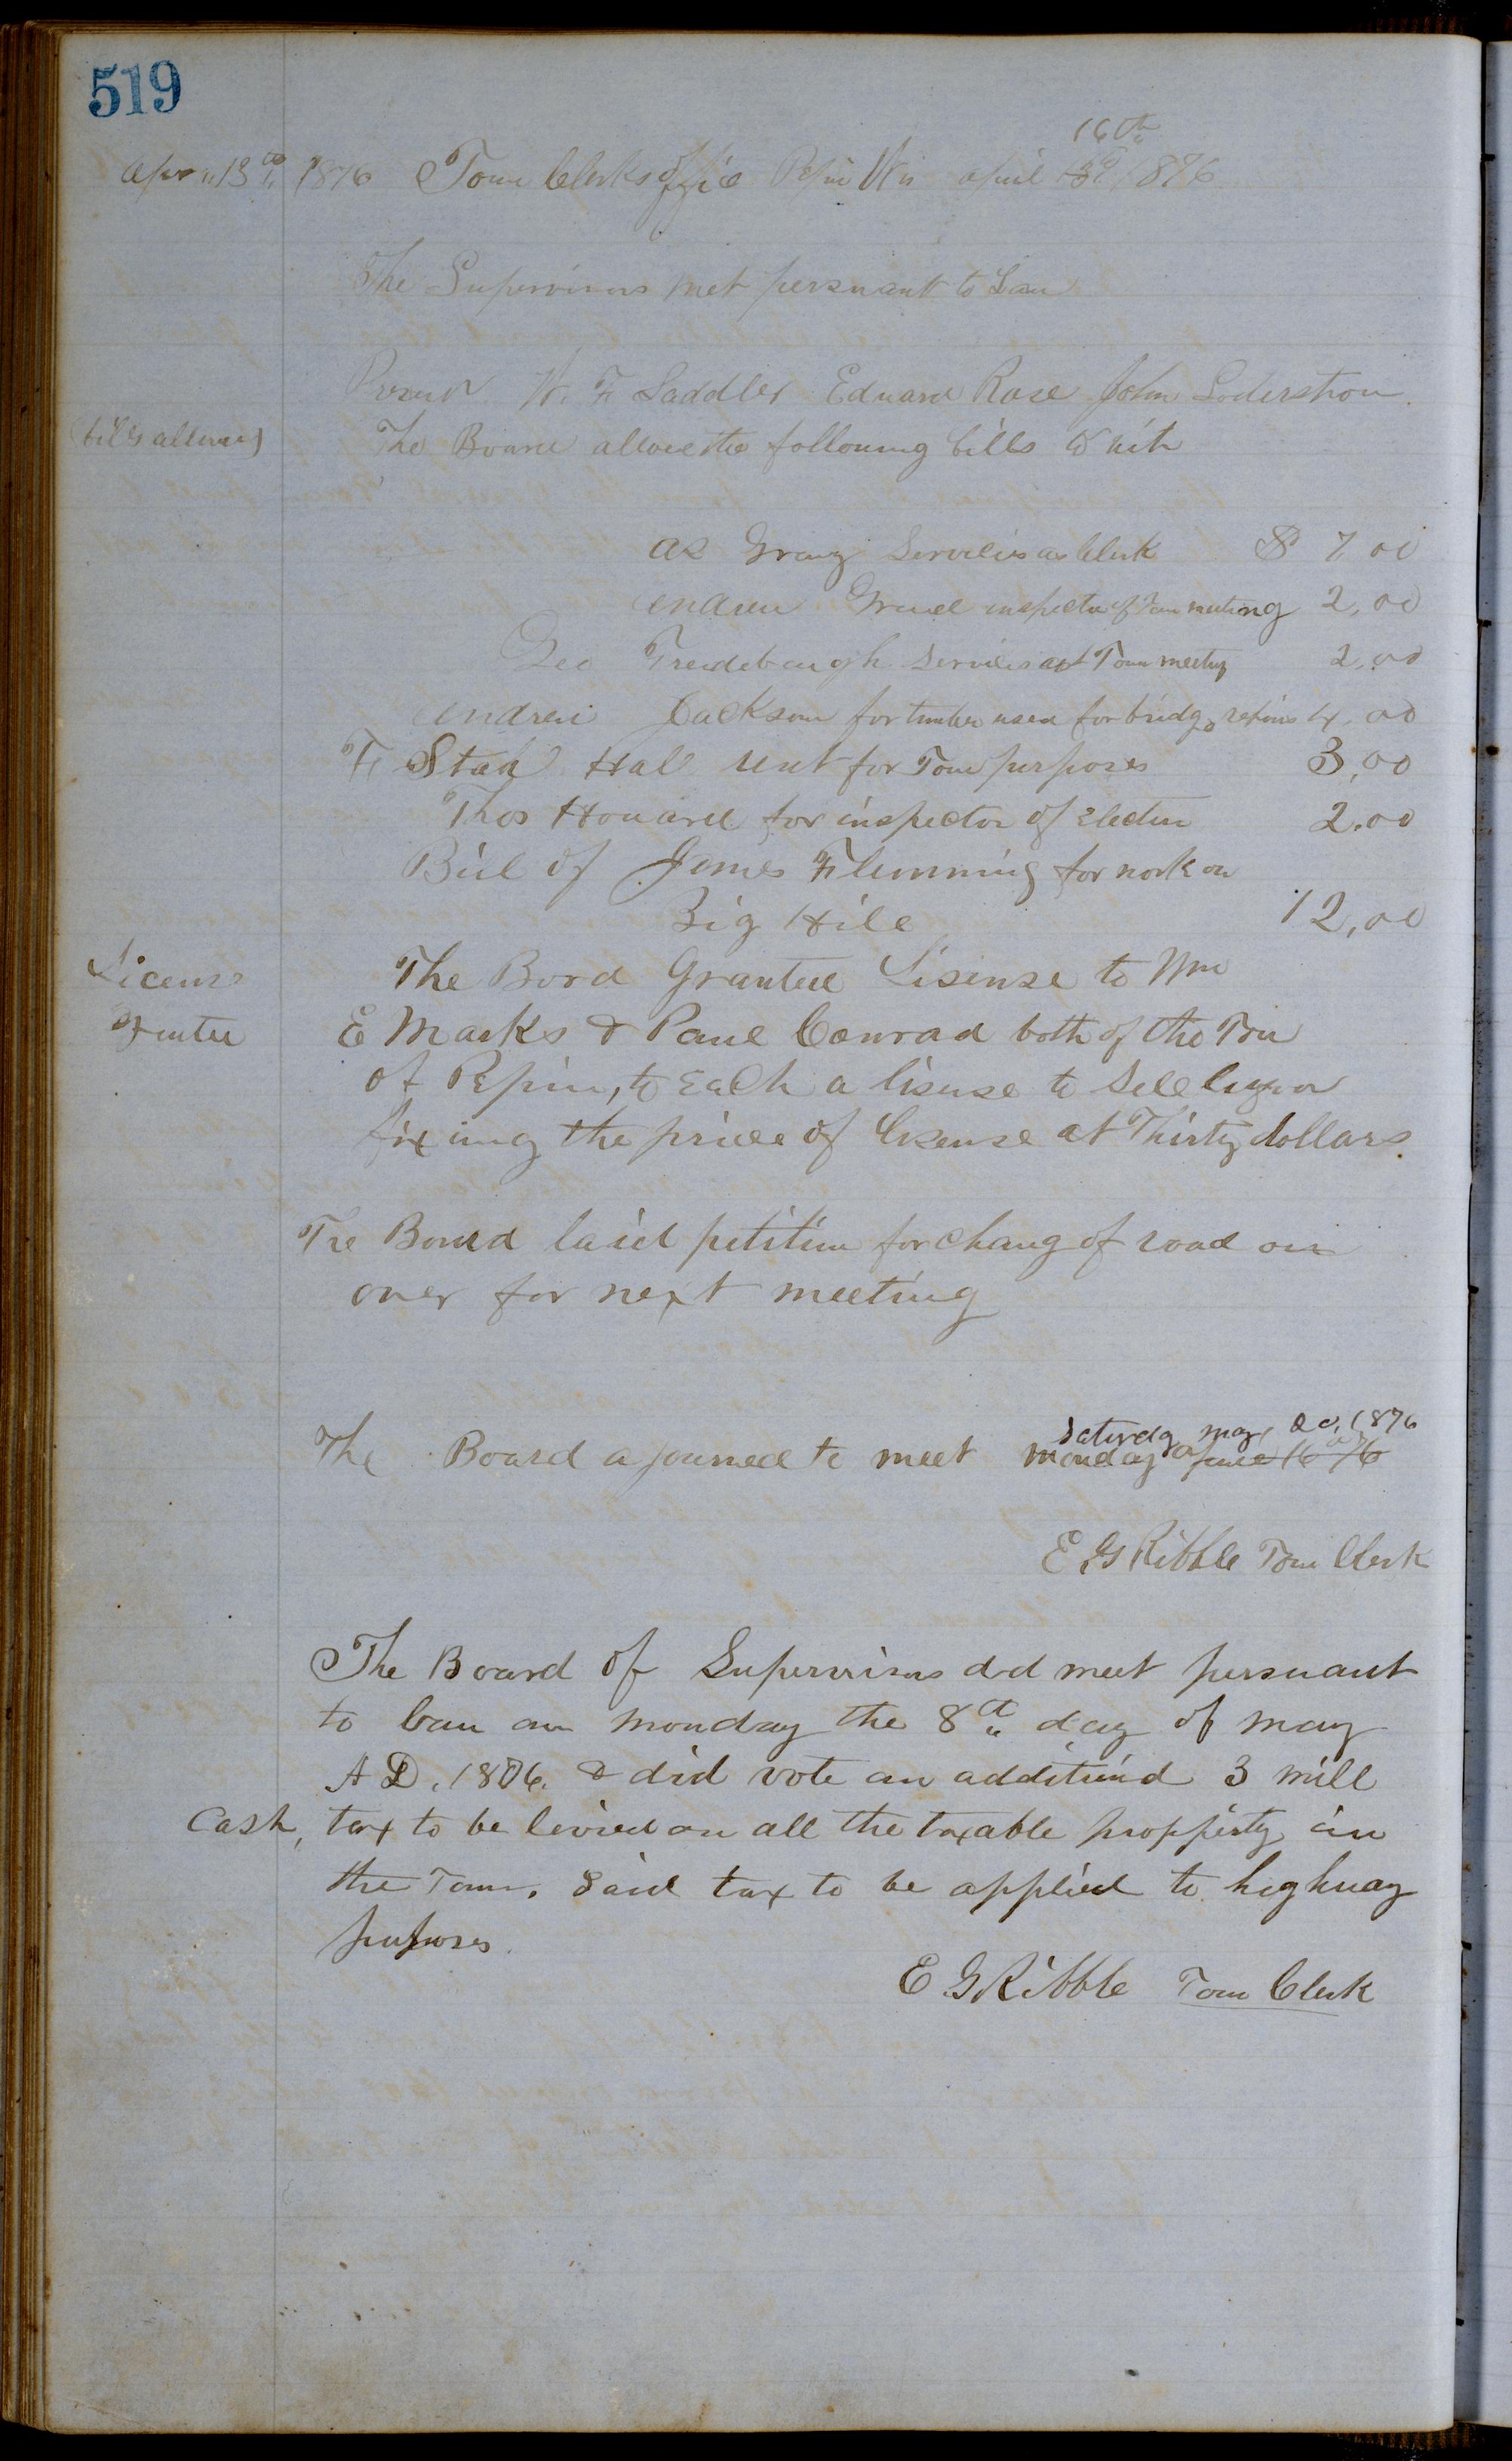 519
16th
Apr 13th 1876 Town Clerks office Pepin Wis april 13th 1876
The Supervisors met persuant to Law
Present W. F. Saddler Edward Rose John Soderstrom
(bills allowed) The Board allowed the following bills to wit
as Services as Clerk $ 7.00
Andrew inspector of Town meeting 2,00
Geo Treudebaugh Services at Town meeting 2,00
Andrew Jackson for timber used for bridge repairs 4,00
F. Stah Hal rent for Town purposes 3,00
Thos Howard for inspector of Election 2.00
Bill of James Flemming for work on
Big Hill 12,00
License The Bord Granted Lisense to Wm
Granted E Marks & Paul Conrad both of the Town
of Pepin, to Each a lisense to sell liquor
fixing the price of lisense at Thirty dollars
The Board laid petition for chang of road on
over for next meeting
Saturday may 20, 1876
The Board ajourned to meet monday 16 76
E. G Ribble Town Clerk
The Board of Supervisors did meet persuant
to Law on monday the 8th day of may
A D. 1876. & did vote an additional 3 mill
Cash, tax to be levied on all the taxable propperty in
the Town. Said tax to be applied to highway
purposes.
E G Ribble Town Clerk